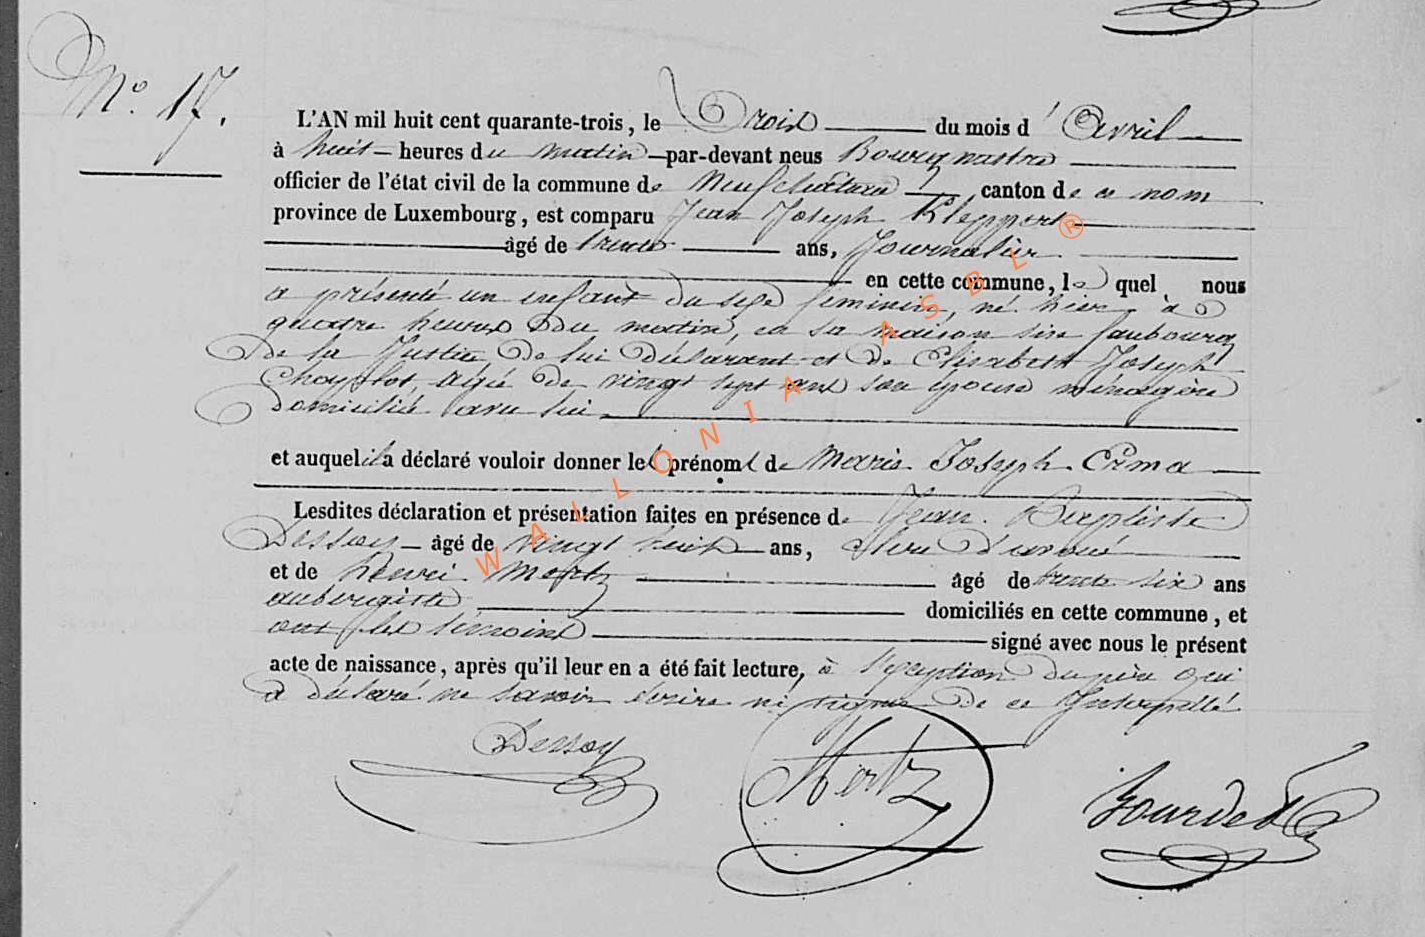 N° 17.
L'AN mil huit cent quarante-trois, le Trois du mois d'Avril
à huit heures du matin par-devant nous Bourgmestre
officier de l'état civil de la commune de Neufchateau canton de ce nom
province de Luxembourg, est comparu Jean Joseph Kleppert
âgé de trente ans, Journalier
en cette commune, lequel nous
a présenté un enfant du sexe feminin, né hier à
quatre heures du matin, en sa maison sise faubourg
de la Justice de lui déclarant et de Elisabeth Joseph
agée de vingt sept ans son épouse ménagère
domiciliée avec lui
et auquel il a déclaré vouloir donner les prénoms de Marie Joseph Erma
Lesdites déclaration et présentation faites en présence de Jean Baptiste
Dessoy âgé de vingt huit ans, Clerc d'avoué
et de Henri Mertz âgé de trente six ans
aubergiste domiciliés en cette commune, et
ont les témoins signé avec nous le présent
acte de naissance, après qu'il leur en a été fait lecture, à l'exception du père qui
a déclaré ne savoir écrire ni signer de ce Interpellé
Dessoy Mertz
WALLONIA ASBL ®